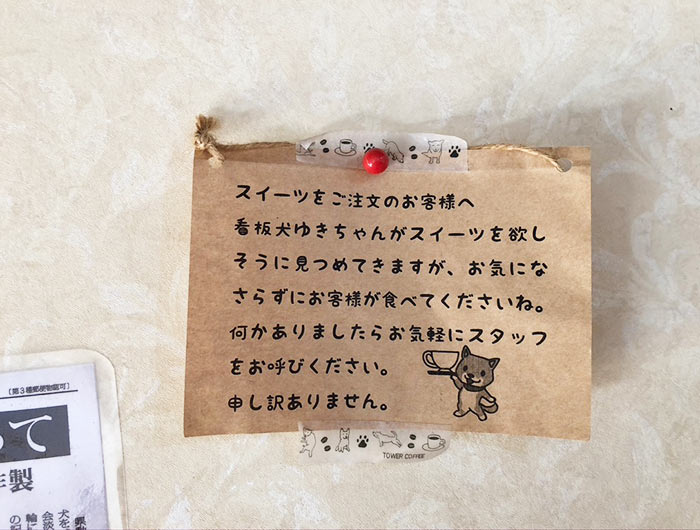 スイーツをご注文のお客様へ
看板犬ゆきちゃんがスイーツを欲し
そうに見つめてきますが、お気にな
さらずにお客様が食べてくださいね。
何かありましたらお気軽にスタッフ
をお呼びください。
申し訳ありません。
TOWER COFFEE
(第3種郵便物認可)
って
製
犬を
会談
輪に
の記